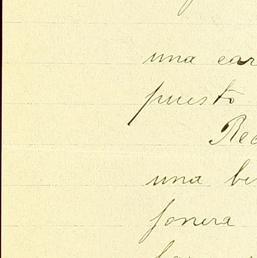 una car
puesto
Rec
una be
fonera